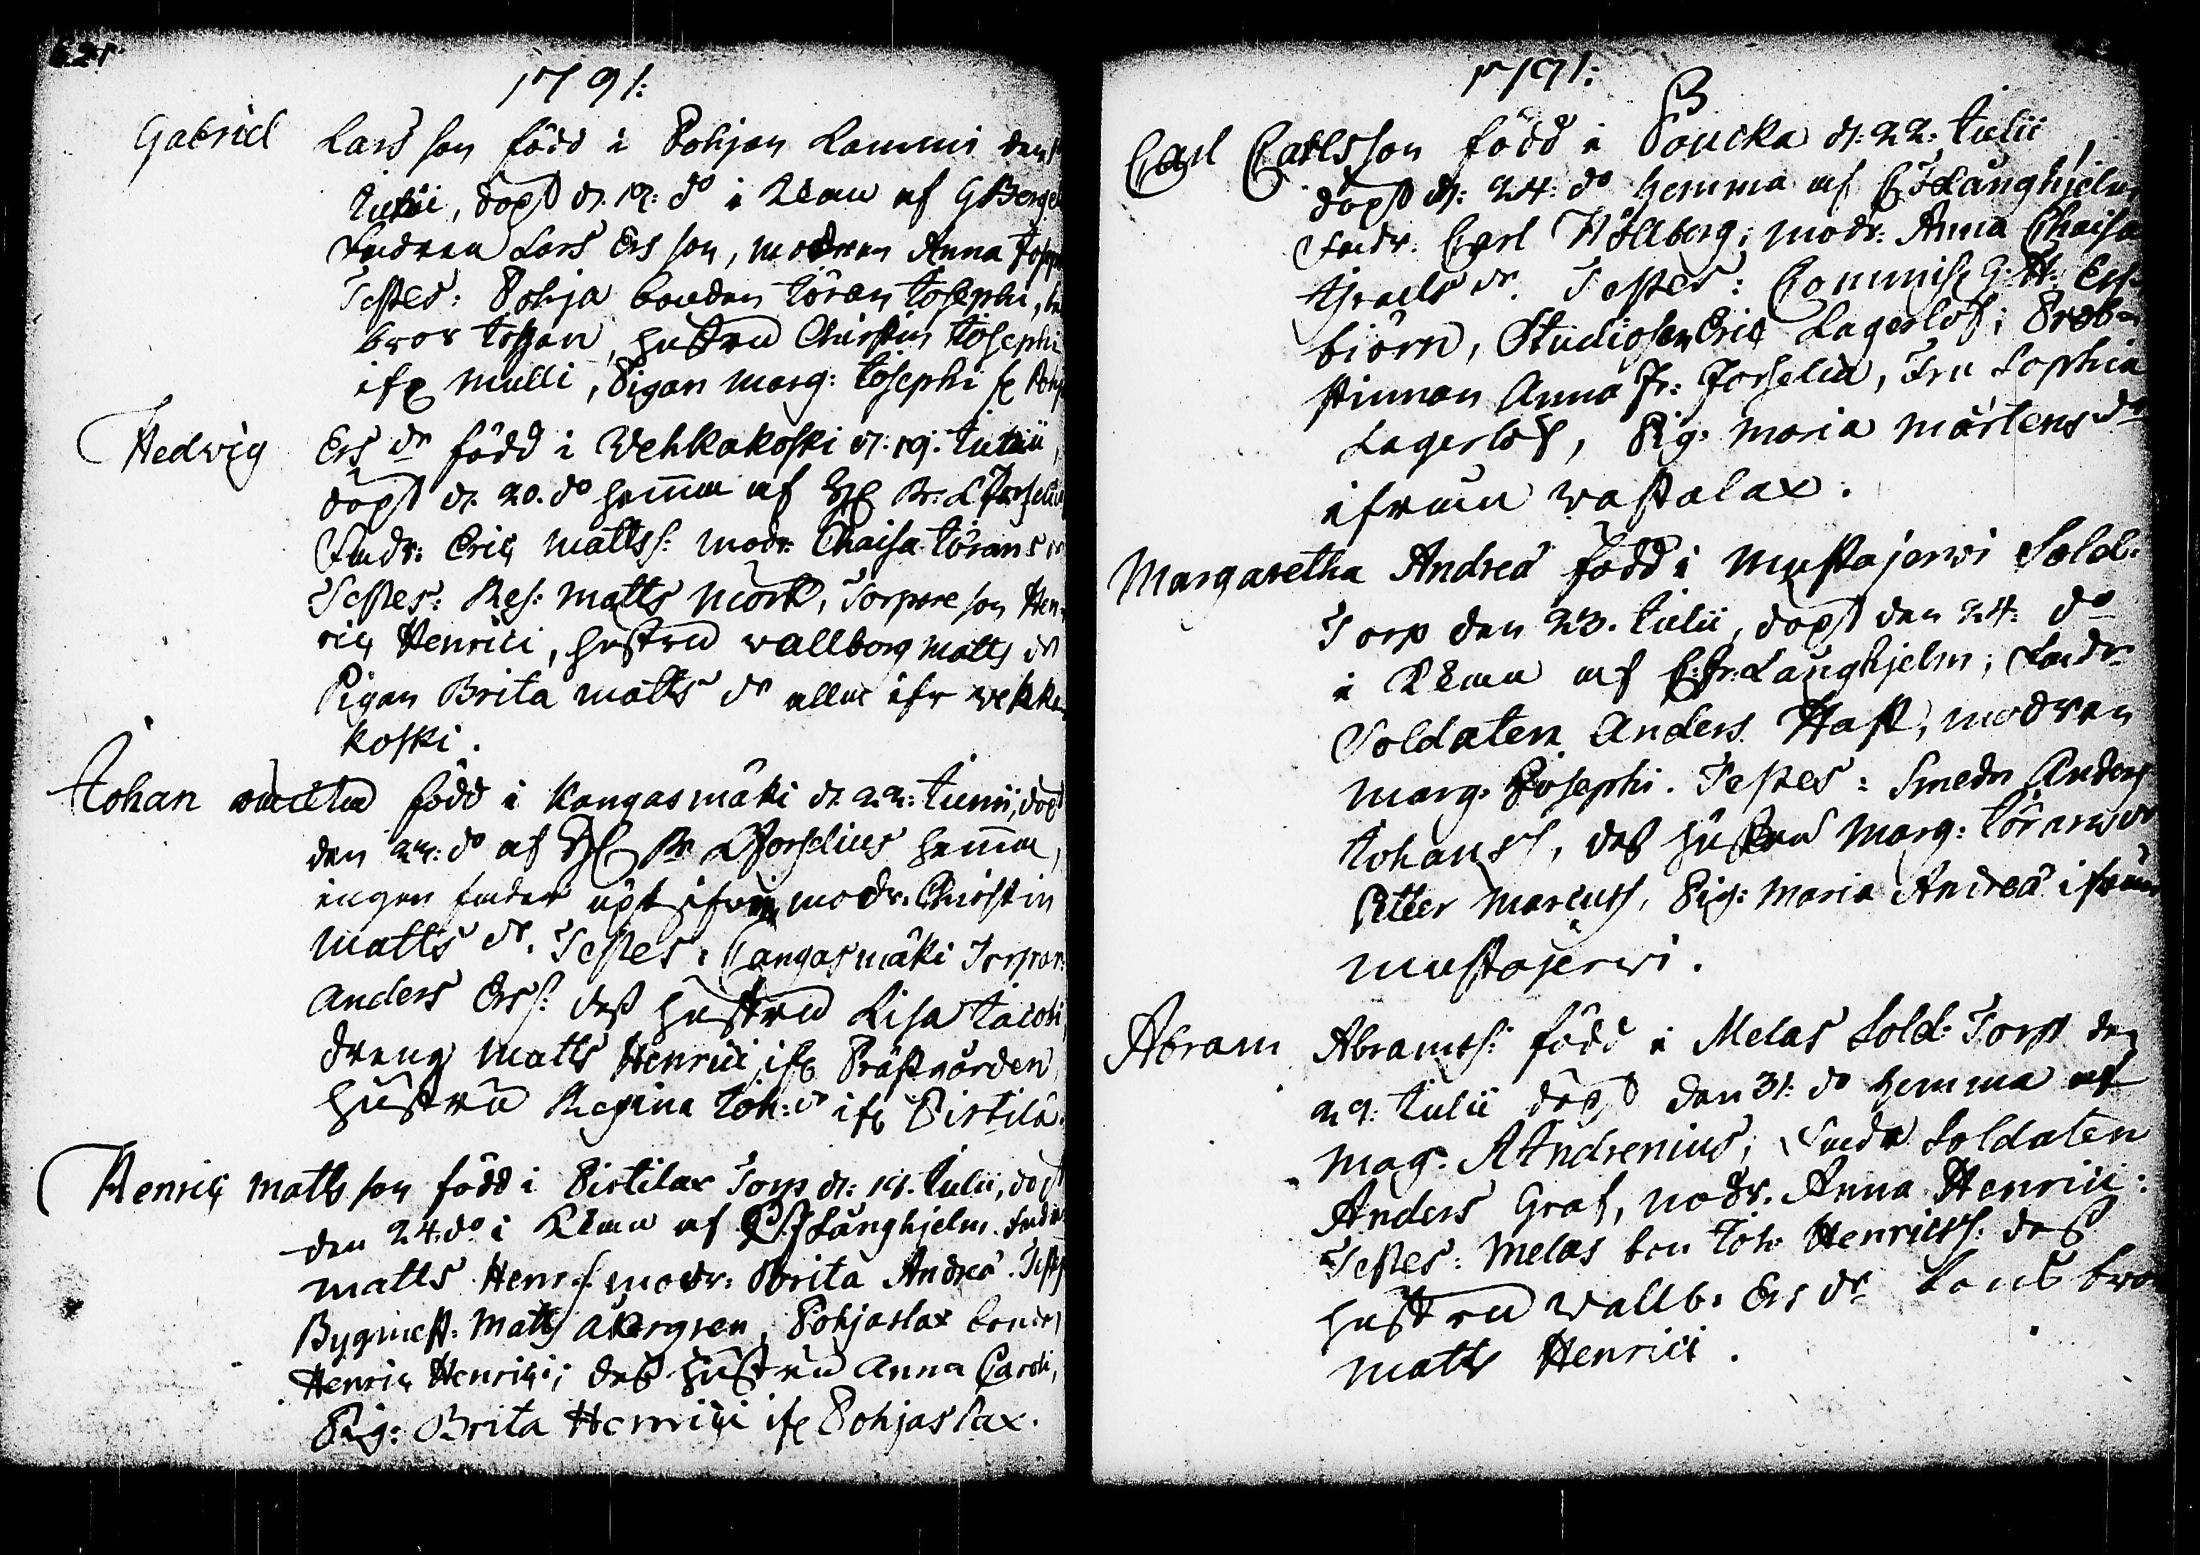 621.
1791:
Gabriel Lars son född i Pohjan Lammi den
Julii, döpt d. 19: do i Kÿrau af G Berge
Fadren Lars Ers son, modren Anna Josep
Testes: Pohja bonden Jöran Josephi,
bror Johan, hustru Christin Josephi
ifr Mulli, Pigan Marg: Josephi fr Pohj
Hedvig Ers dr född i Wehkakoski d: 19: Julii,
döpt d. 20. do hemma af Hr Br: L Forselius
Fadr: Eric Mattss: modr: Chaisa Jörans dr
Testes: Res: Matts Mörk, Torpare son Hen-
ric Henrici, hustru Wallborg Matts dr
Pigan Brita Matts dr alla ifr Wehka-
koski.
Johan oächta född i Kangasmäki d. 22: Junii, döpt
den 27: do af Hr Br L Forselius hemma,
ingen fader upt modr. Christin
Matts dr. Testes: Cangasmäki Torpar:
Anders Erss: dess hustru Lisa Jacobi
dräng Matts Henrici ifr Prästgården,
hustru Regina Joh: dr ifr Pistilä.
Henric Matts son född i Pistilax Torp d: 18. Julii, döpt
den 24: do i Kÿrau af C: F Långhjelm. Fadr
Matts Henr.s. modr: Brita Andreæ. Test
Bygmest. Matts Åkergren, Pohjaslax bonde
Henric Henrici; dess hustru Anna Caroli,
Pig: Brita Henrici ifr Pohjaslax.
1791:
Carl Carlsson född i Poucka d: 22: Julii
döpt d: 24: do hemma af C F Långhjelm
Fadr: Carl Wållberg; modr: Anna Chaisa
Israels dr. Testes: Commiss G: H: Ess-
biörn, Studiosen Eric Lagerlöf; Prob-
stinnan Anna Fr: Forselia, Fru Sophia
Lagerlöf, Pig: Maria Mårtens dr
ifrån Wastalax.
Margaretha Andreæ född i Mustajerwi Sold:
Torp den 23. Julii, döpt den 24: do
i Kÿrau af C: Fr: Långhjelm; Fadr
Soldaten Anders Hast, modren
Marg: Josephi. Testes: Smeden Anders
Johanss, dess hustru Marg: Jörans dr
Petter Marcuss, Pig: Maria Andreæ ifrån
Mustajerwi.
Abram Abramss: född i Melas Sold: Torp den
29: Julii döpt den 31: do hemma af
Mag: A Andrenius; Fadr Soldaten
Anders Graf, modr. Anna Henrici:
Testes: Melas bon Joh: Henricss: dess
hustru Wallb: Ers dr bons bror
Matts Henrici.